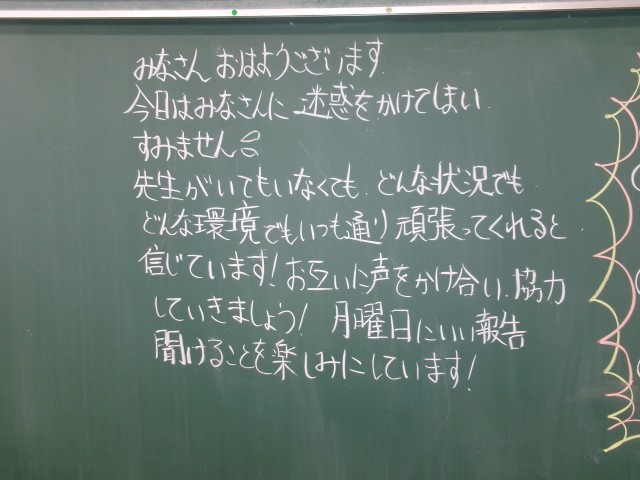 みなさん おはようございます.
今日はみなさんに 迷惑をかけてしまい.
すみません。
先生がいてもいなくても. どんな状況でも.
どんな環境でもいつも通り 頑張ってくれると
信じています! お互いに声をかけ合い. 協力
していきましょう! 月曜日にいい報告
聞けることを楽しみにしています!